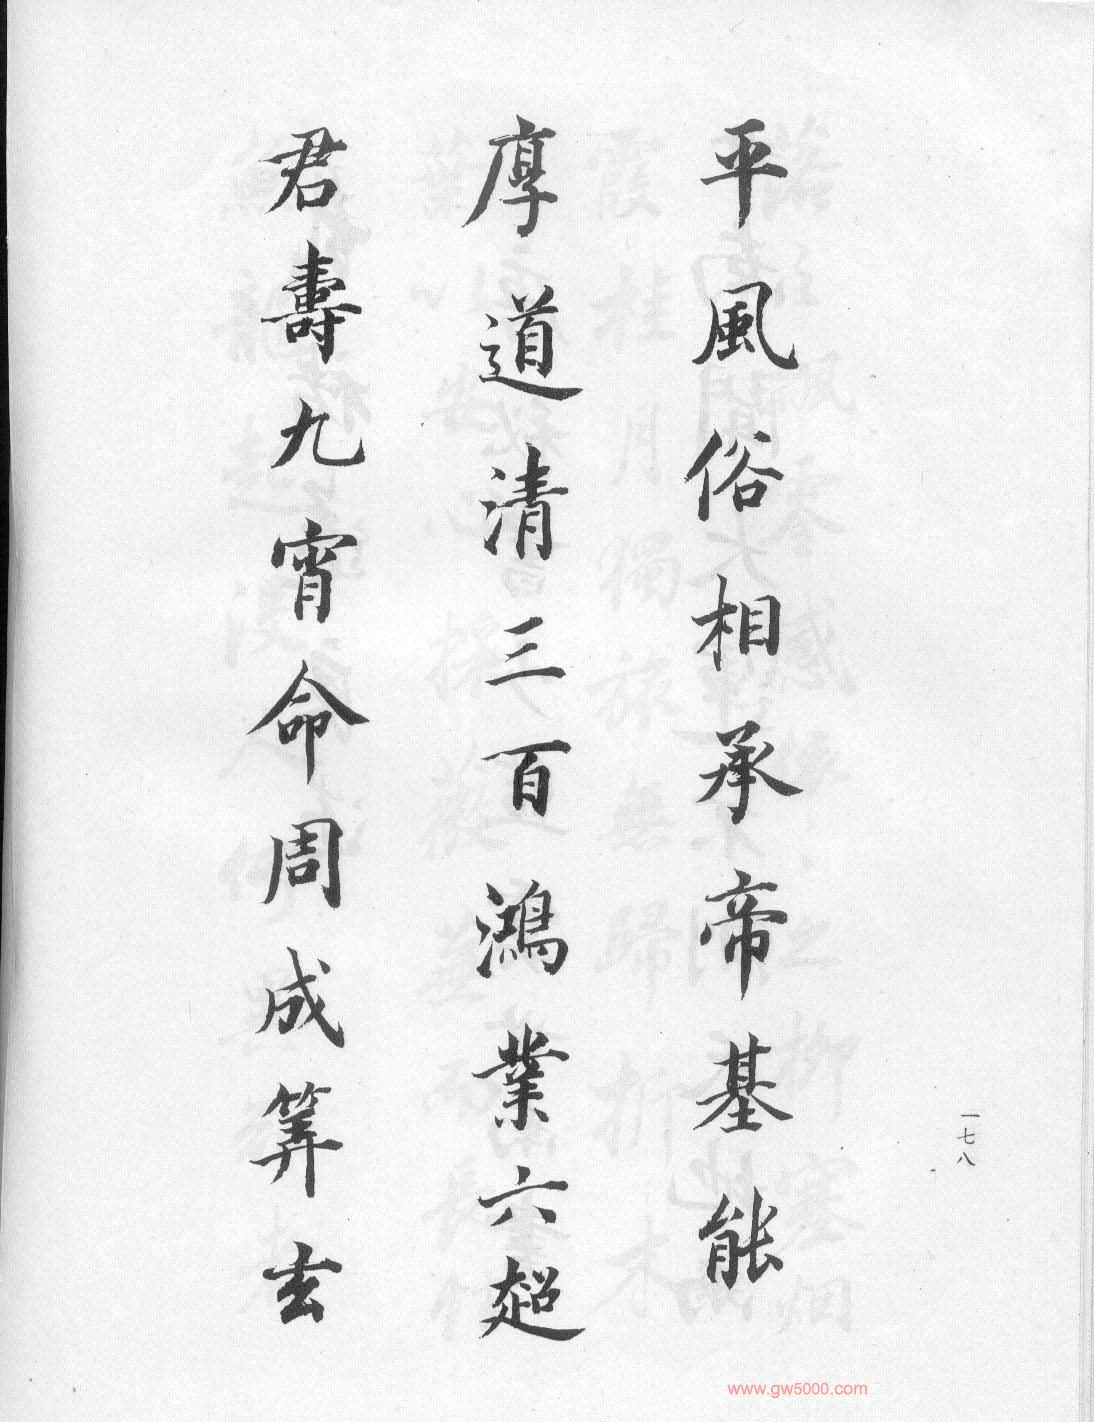 平風俗相承帝基能
厚道清三百鴻業六超
君壽九宵命周成筭玄
一七八
www.gw5000.com